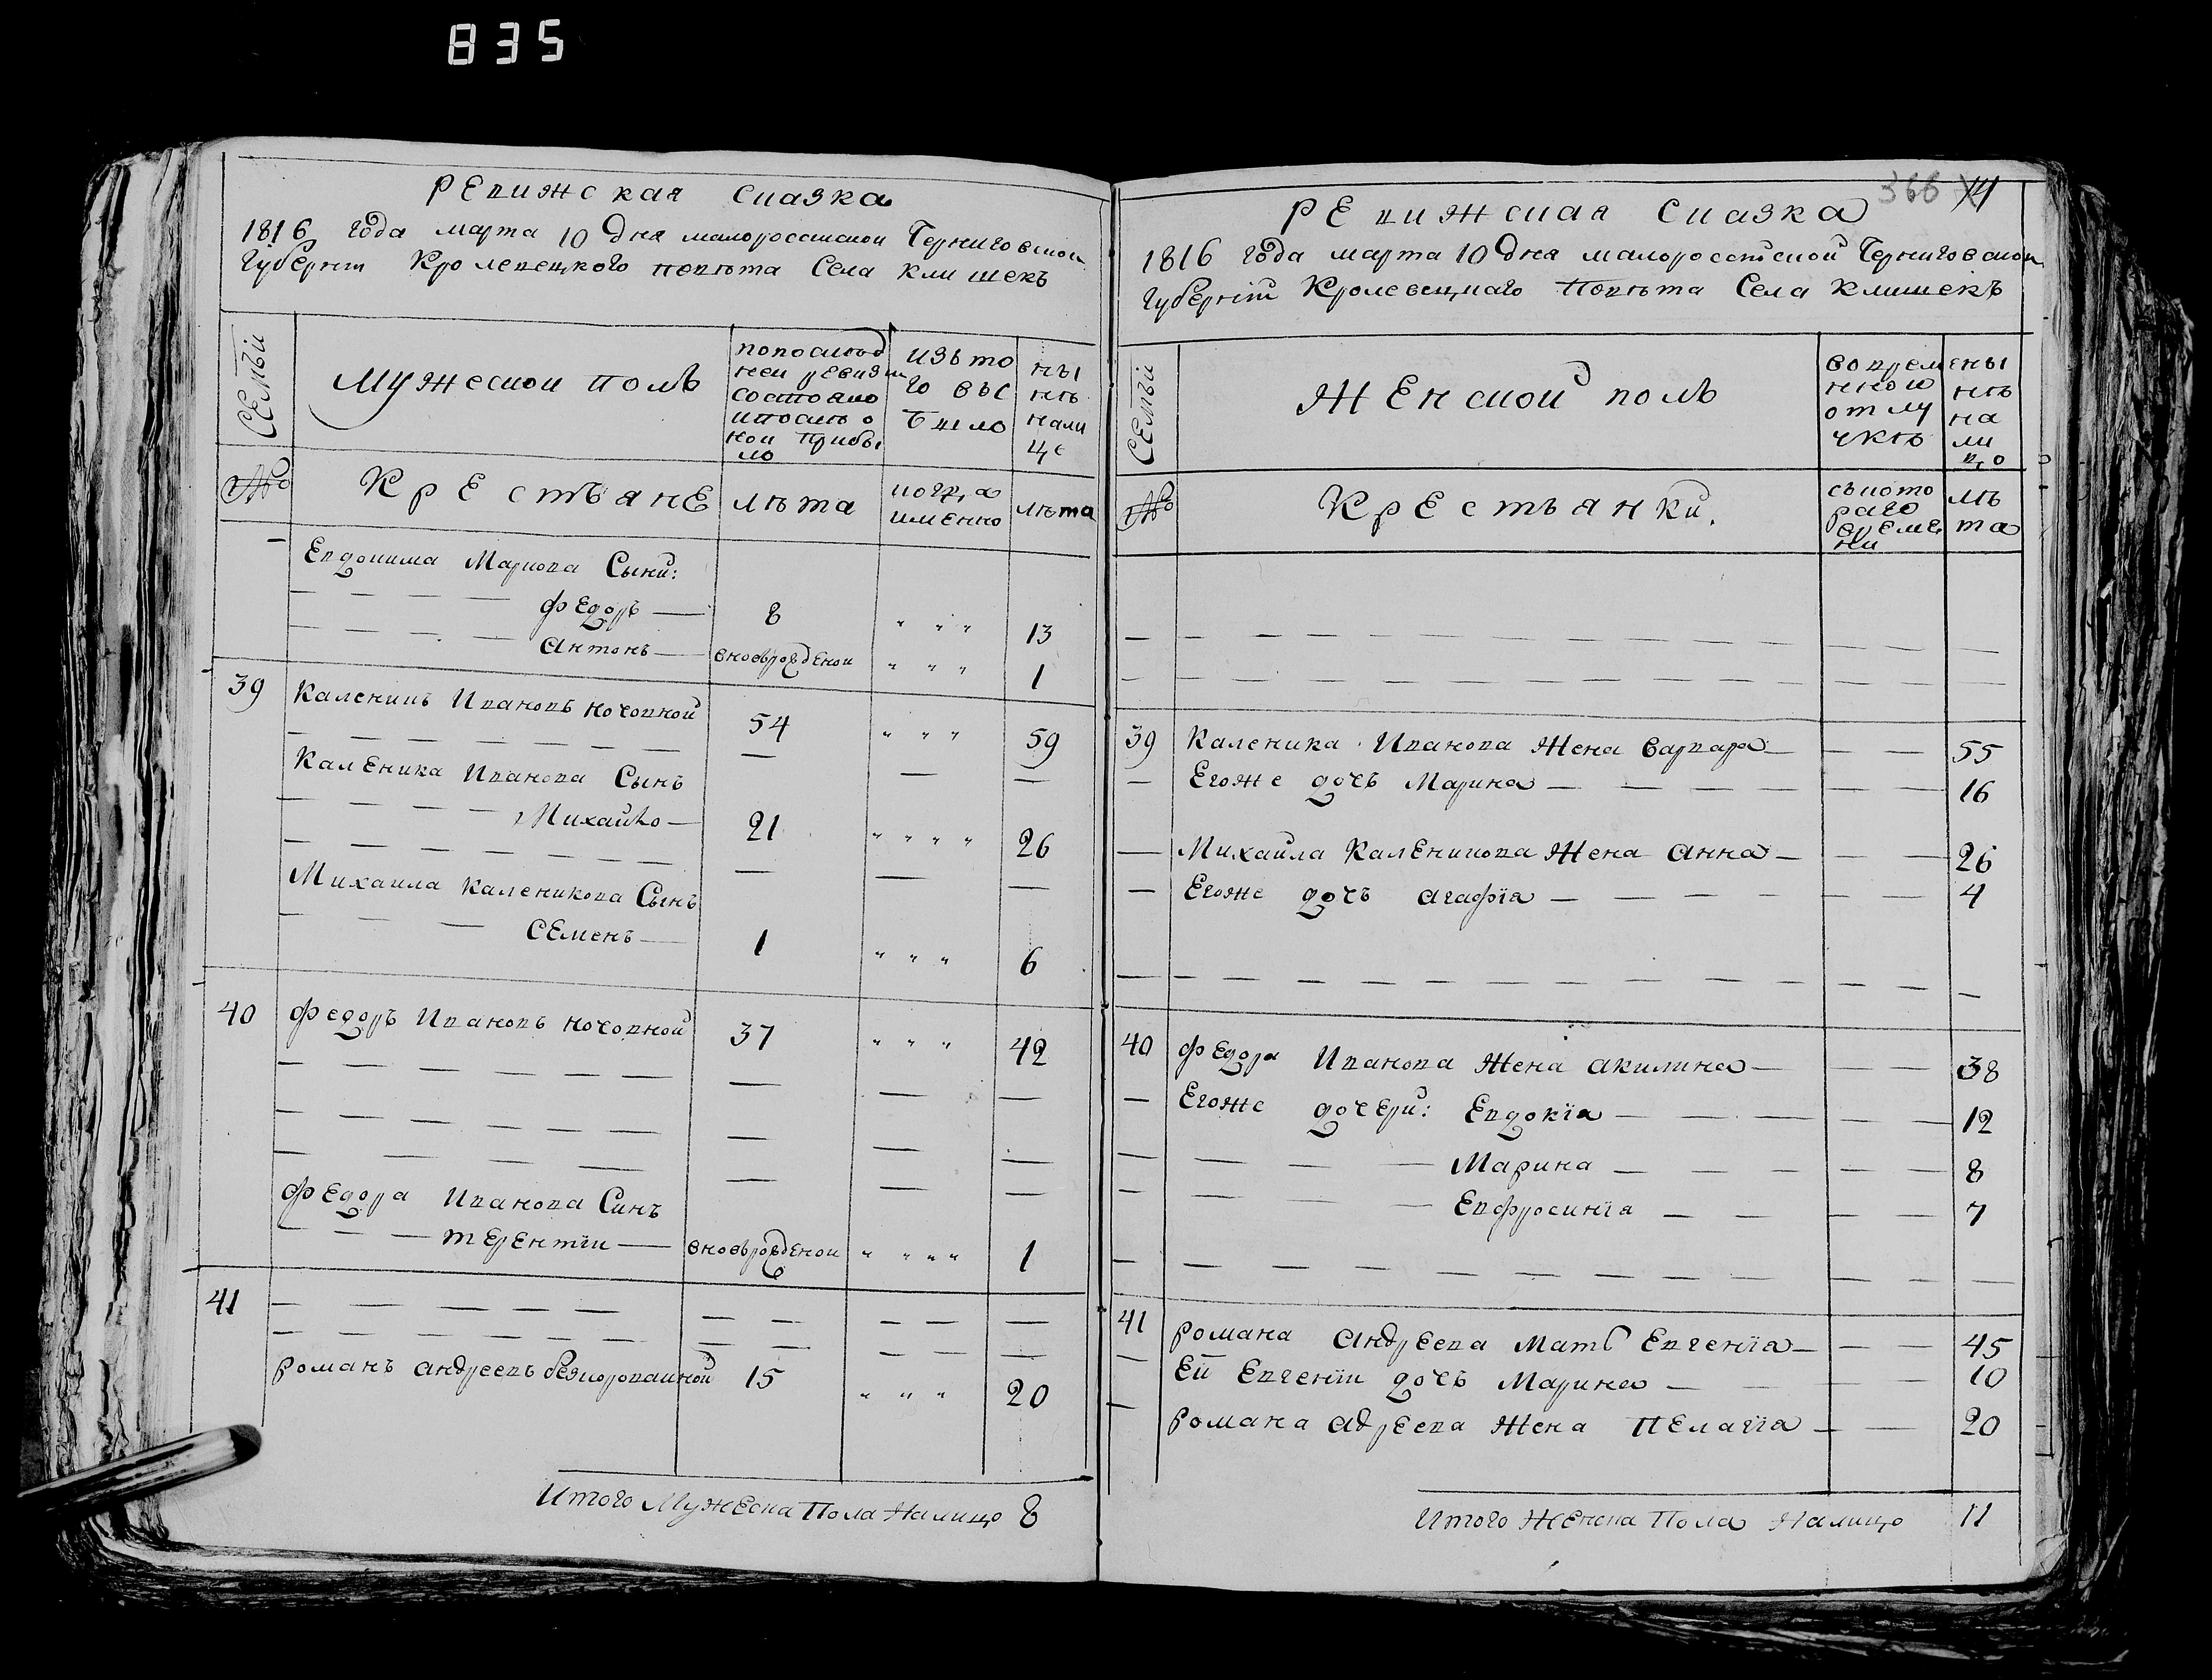 835
Ревижская сказка
1816 года марта 10 дня малороссискои Черниговскои
Губернїи Кролевецкого повѣта Села клишекъ
Семъїи
Мужескои полъ
попослѣд
неи ревизїи
состояло
ипослѣ о
нои прибы
ло
изъ то
го выб
было
ны
нѣ
нали
це
№
Крестьяне
лѣта
когда
именно
лѣта
Евдокима Маркова Сыни:
Федоръ 8 " " " 13
антонъ вновьрожденои " " " 1
39 Каленикъ Ивановъ Кочовной 54 " " " 59
Каленика Иванова Сынъ
Михайло 21 " " " " 26
Михаила каленикова Сынъ
Семенъ 1 " " " 6
40 Федоръ Ивановъ Кочовной 37 " " " 42
Федора Иванова Синъ
терентїи вновьрожденои " " " " 1
41
романъ андреевъ безкоровайной 15 " " " 20
Итого Мужеска Пола Налицо 8
366 14
Ревижская Сказка
1816 года марта 10 дня малороссїской Черниговскои
Губернїи Кролевецкаго Повѣта Села клишекъ
Семъїи
Женской полъ
во време
нной
отлу
чкѣ
ны
нѣ
на
ли
цо
№
Крестьянки.
съкото
раго
време
ни
лѣ
та
39 Каленика Иванова Жена Варвара 55
Егоже дочъ Марина 16
Михайла Каленикова Жена анна 26
Егоже дочъ агафїа 4
40 Федора Иванова Жена акилина 38
Егоже дочери: Евдокїа 12
Марина 8
Ефросинїа 7
41 романа андреева Мать Евгенїа 45
Ей Евгенїи дочъ Марина 10
романа адреева Жена Пелагїа 20
Итого Женска Пола Налицо 11